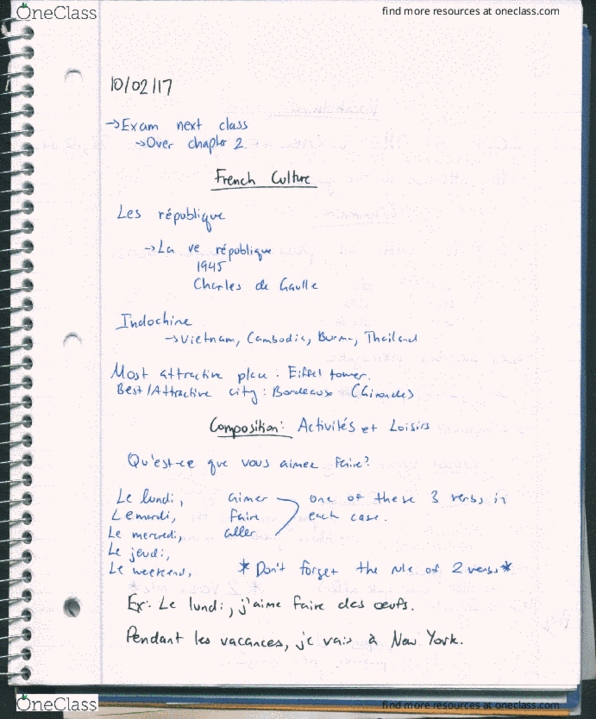 OneClass
find more resources at oneclass.com
10/02/17
→Exam next class
→Over chapter 2.
French Culture
Les république
→La ve république
1945
Charles de Gaulle
Indochine
→Vietnam, Cambodia, Burma, Thailand
Most attractive place: Eiffel tower.
Best/Attractive city: Bordeaux (Gironde)
Composition: Activités et Loisirs
Qu'est-ce que vous aimez faire?
Le lundi, aimer one of these 3 verbs in
Le mardi, faire each case.
Le mercredi, aller
Le jeudi,
Le weekend, *Don't forget the rule of 2 verbs*
Ex: Le lundi, j'aime faire des œufs.
Pendant les vacances, je vais à New York.
OneClass
find more resources at oneclass.com